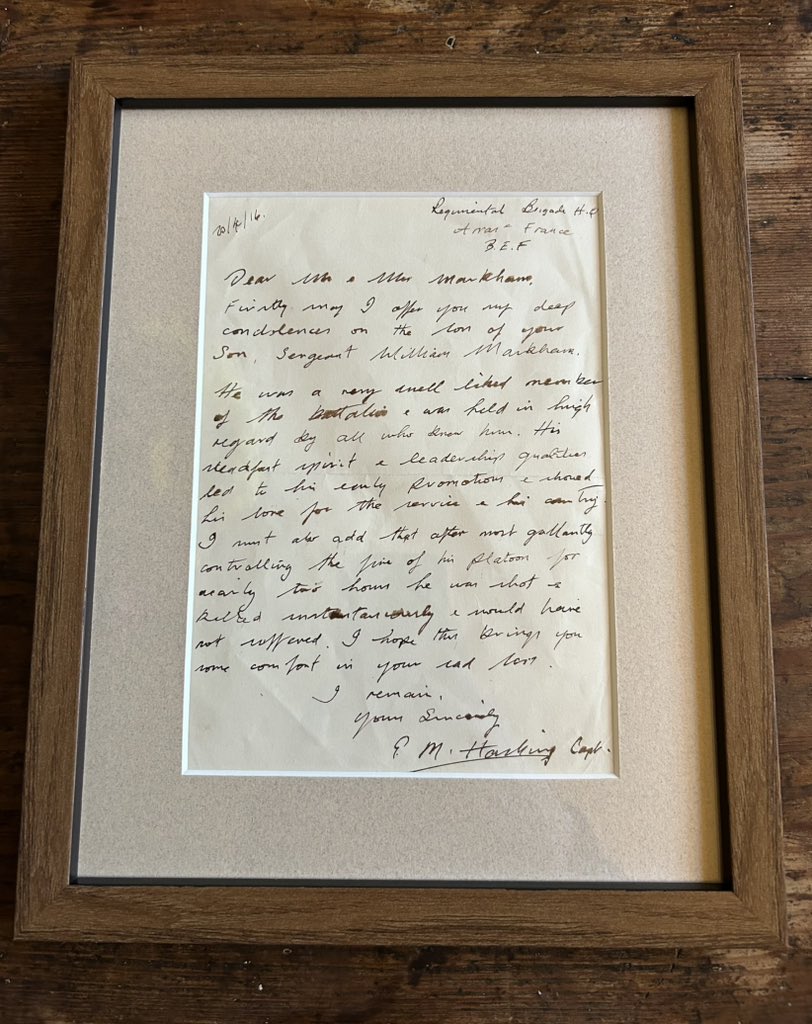 20/4/16.
Regimental Brigade H.Q
Arras France
B.E.F
Dear Mr & Mrs Markham.
Firstly may I offer you my deep
condolences on the loss of your
Son, Sergeant William Markham.
He was a very well liked member
of the battalion & was held in high
regard by all who knew him. His
steadfast spirit & leadership qualities
led to his early promotions & showed
his love for the service & his country.
I must also add that after most gallantly
controlling the fire of his platoon for
nearly two hours he was shot &
killed instantaneously & would have
not suffered. I hope this brings you
some comfort in your sad loss.
I remain,
Yours Sincerely
M. Capt.